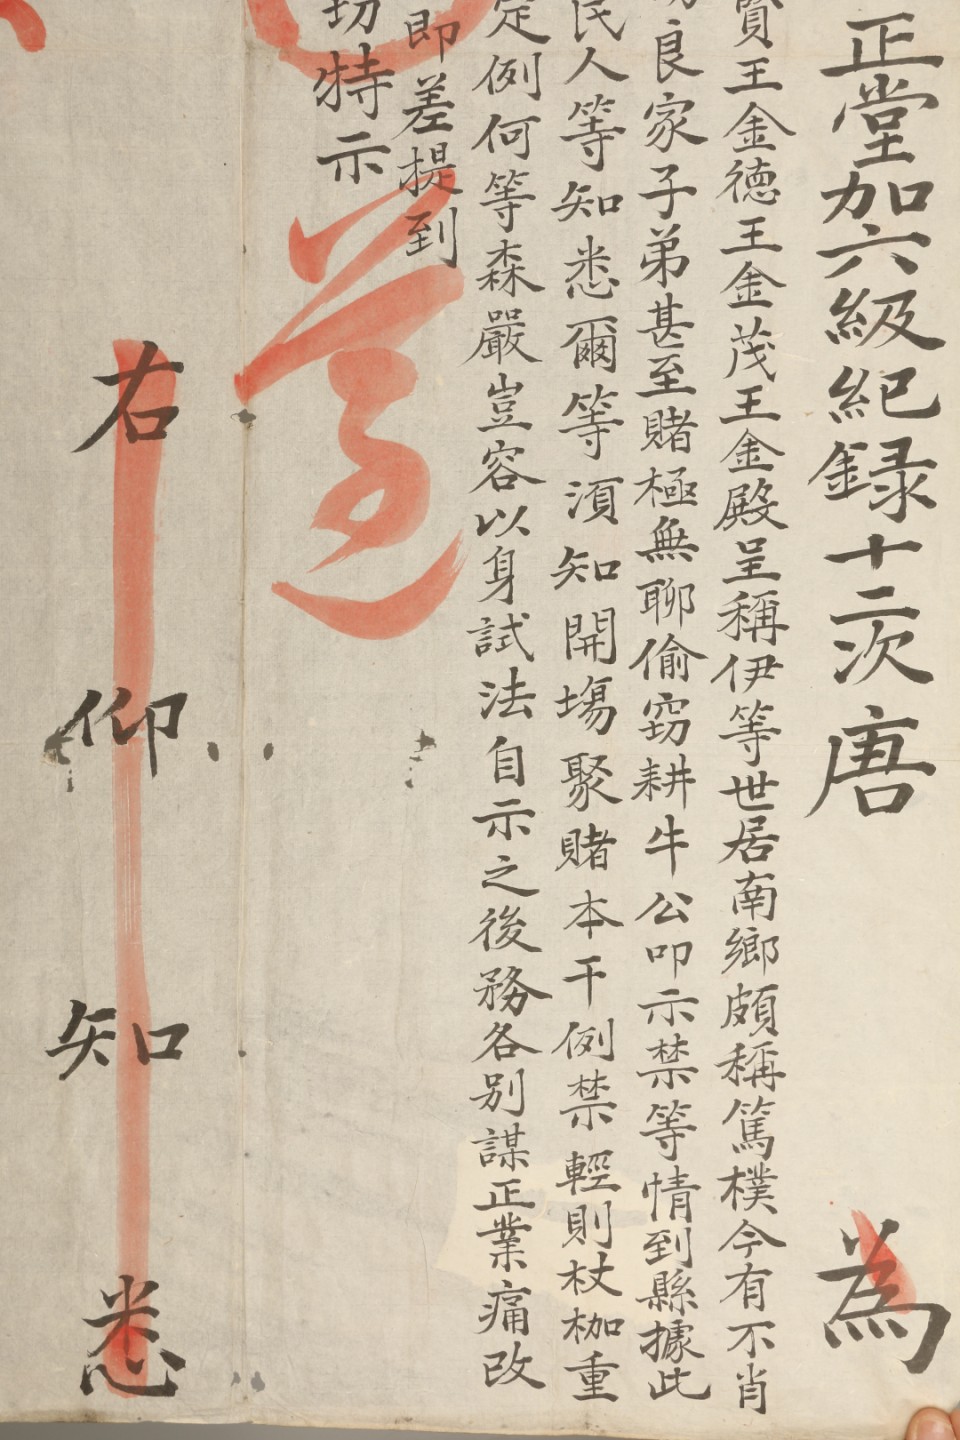 正堂加六級紀録十二次唐 為
賢王金德王金茂王金殿呈稱伊等世居南鄉頗稱篤樸今有不肖
良家子弟甚至賭極無聊偷窃耕牛公叩示禁等情到縣據此
民人等知悉爾等湏知開塲聚賭本干例禁輕則杖枷重
定例何等森嚴豈容以身試法自示之後務各别謀正業痛改
即差提到
切特示
遵
右仰知悉